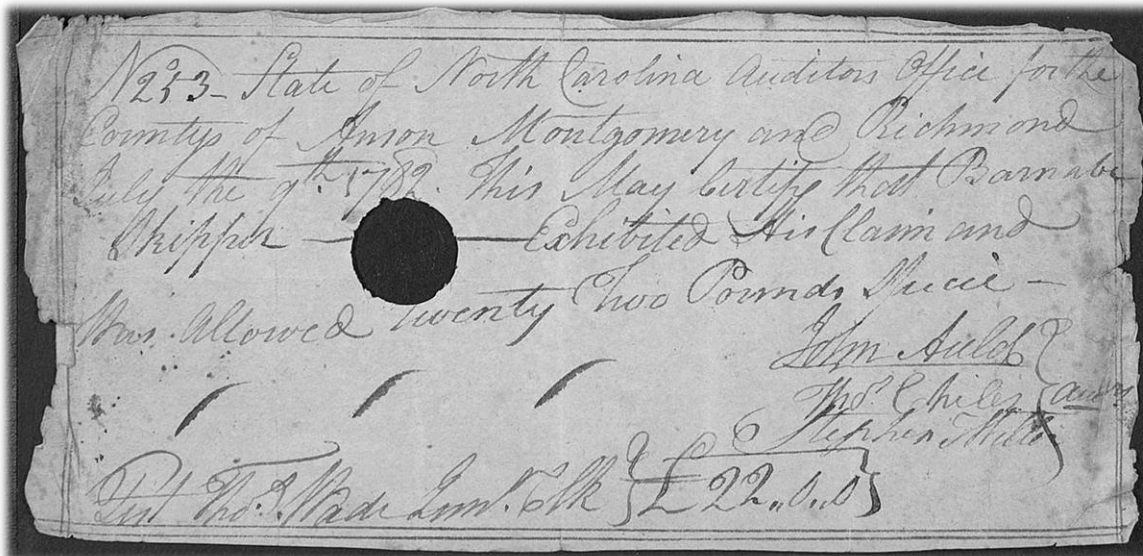 No 253 - State of North Carolina Auditors Office for the
Countys of Anson Montgomery and Richmond
July the 9th 1782. This May Certify that Barnabe
Skipper — Exhibited His Claim and
Was Allowed Twenty Two Pounds Specie -
John Auld
Thos Childs } Audrs
Stephen Miller
Test Thos. Wade Junr. Clk } £ 22,,0,,0 }